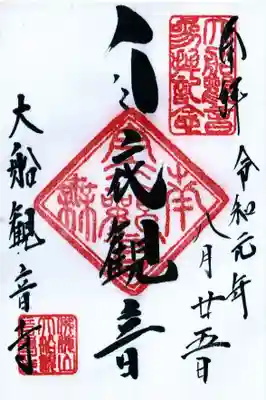 奉拝
令和元年
八月廿五日
白衣観音
大船観音寺